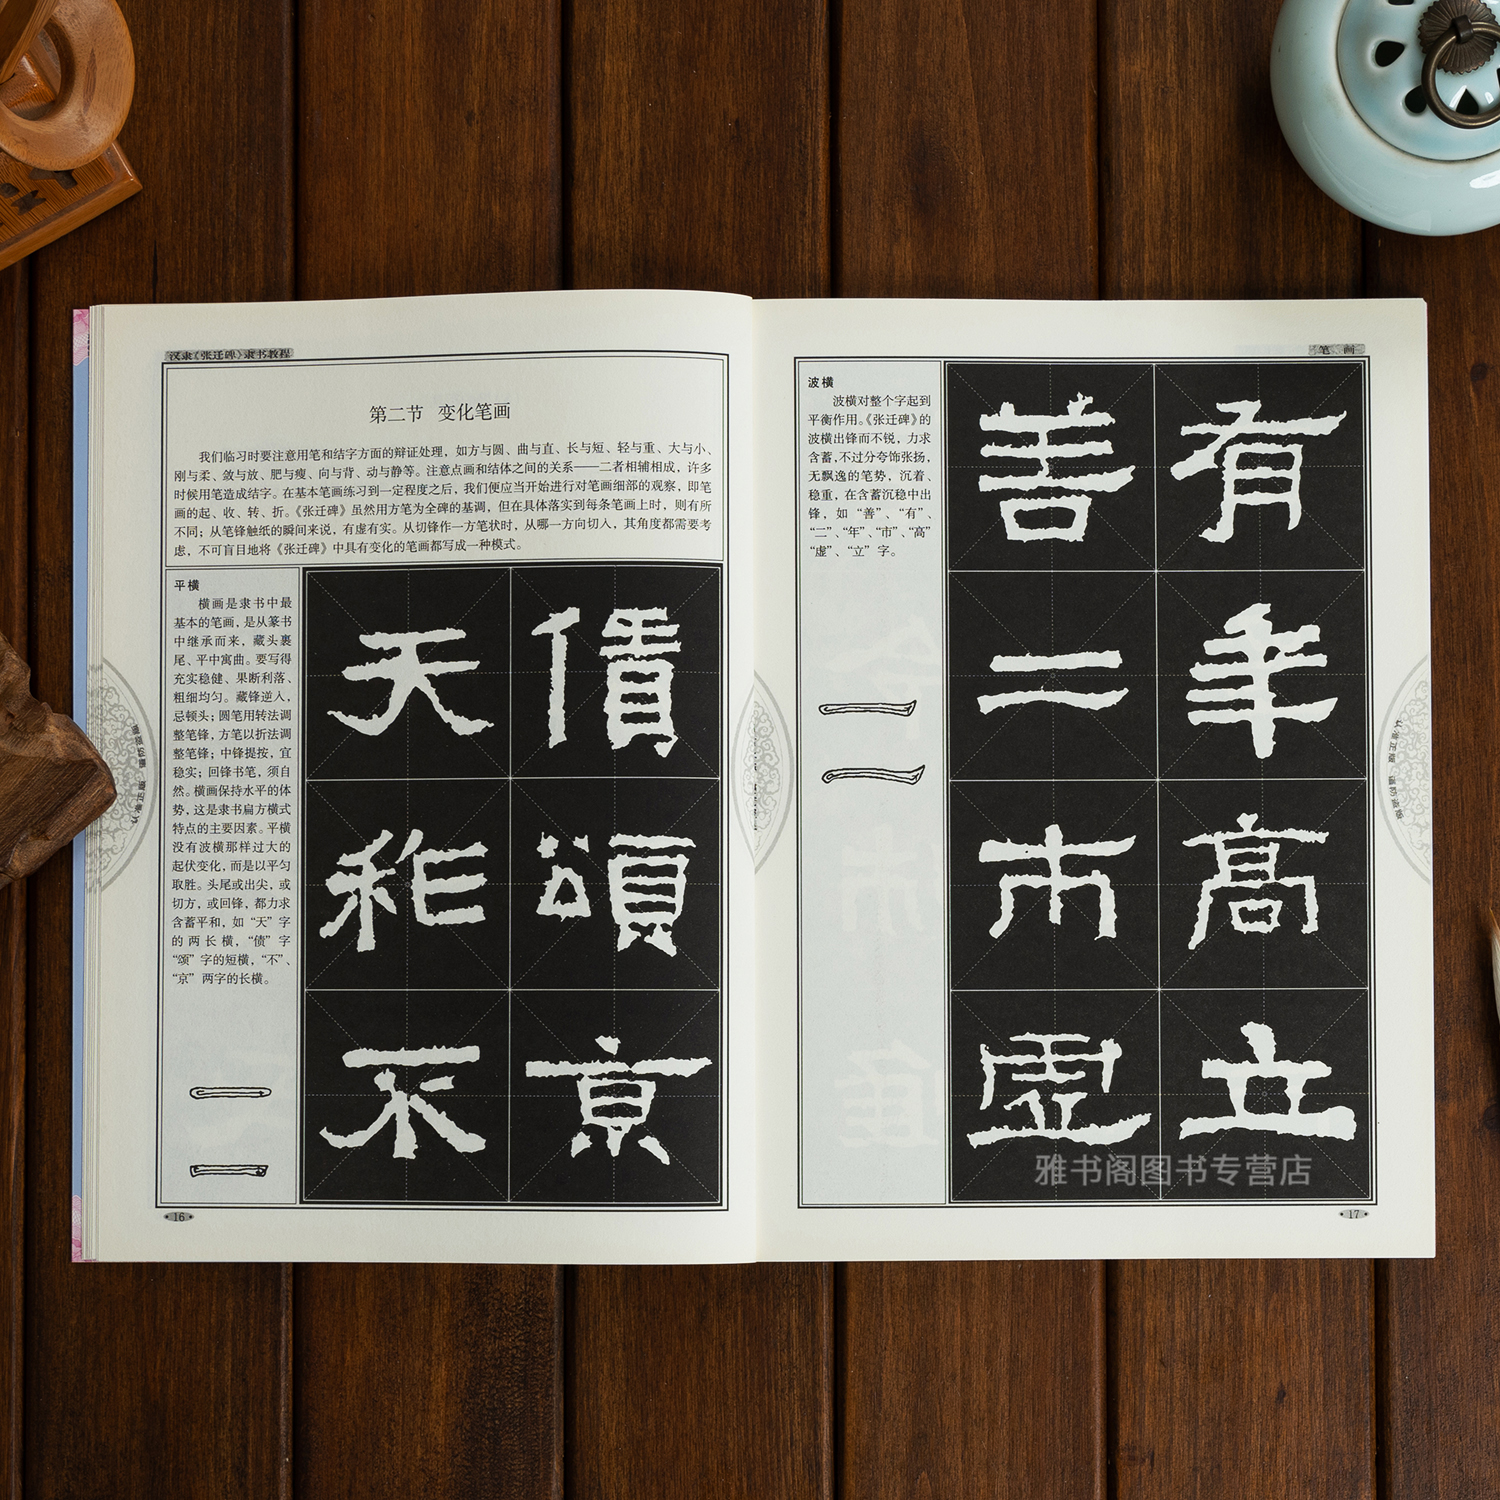 汉隶《张迁碑》隶书教程
第二节 变化笔画
我们临习时要注意用笔和结字方面的辩证处理，如方与圆、曲与直、长与短、轻与重、大与小、
刚与柔、敛与放、肥与瘦、向与背、动与静等。注意点画和结体之间的关系——二者相辅相成，许多
时候用笔造成结字。在基本笔画练习到一定程度之后，我们便应当开始进行对笔画细部的观察，即笔
画的起、收、转、折。《张迁碑》虽然用方笔为全碑的基调，但在具体落实到每条笔画上时，则有所
不同；从笔锋触纸的瞬间来说，有虚有实。从切锋作一方笔状时，从哪一方向切入，其角度都需要考
虑，不可盲目地将《张迁碑》中具有变化的笔画都写成一种模式。
平横
横画是隶书中最
基本的笔画，是从篆书
中继承而来，藏头裹
尾、平中寓曲。要写得
充实稳健、果断利落、
粗细均匀。藏锋逆入，
忌顿头；圆笔用转法调
整笔锋，方笔以折法调
整笔锋；中锋提按，宜
稳实；回锋书笔，须自
然。横画保持水平的体
势，这是隶书扁方横式
特点的主要因素。平横
没有波横那样过大的
起伏变化，而是以平匀
取胜。头尾或出尖，或
切方，或回锋，都力求
含蓄平和，如“天”字
的两长横，“债”字
“颂”字的短横，“不”、
“京”两字的长横。
天 債
頌
不 京
16
笔画
波横
波横对整个字起到
平衡作用。《张迁碑》的
波横出锋而不锐，力求
含蓄，不过分夸饰张扬，
无飘逸的笔势，沉着、
稳重，在含蓄沉稳中出
锋，如“善”、“有”、
“二”、“年”、“市”、“高”
“虚”、“立”字。
善 有
二 年
市 高
虚 立
17
雅书阁图书专营店